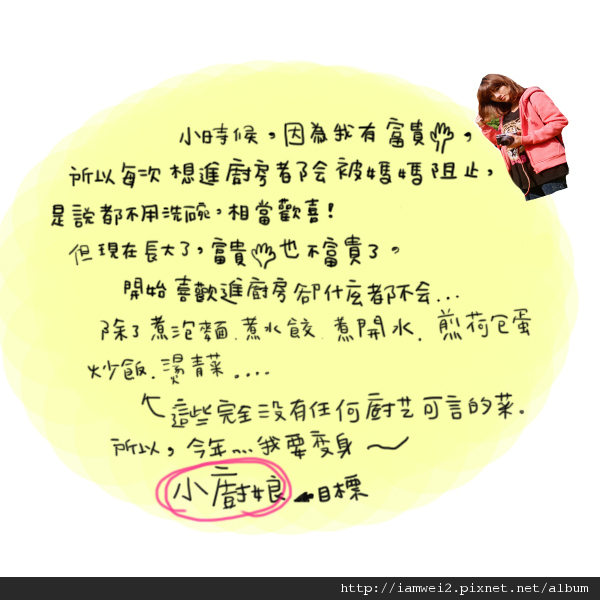 小時候，因為我有富貴，
所以每次想進廚房都会被媽媽阻止，
是說都不用洗碗，相當歡喜！
但現在長大了，富貴也不富貴了。
開始喜歡進廚房卻什麼都不会...
除了煮泡麵.煮水餃.煮開水.煎荷包蛋
炒飯.燙青菜....
這些完全没有任何廚芸可言的菜。
所以，今年...我要变身～
小廚娘 目標
http://iamwei2.pixnet.net/album